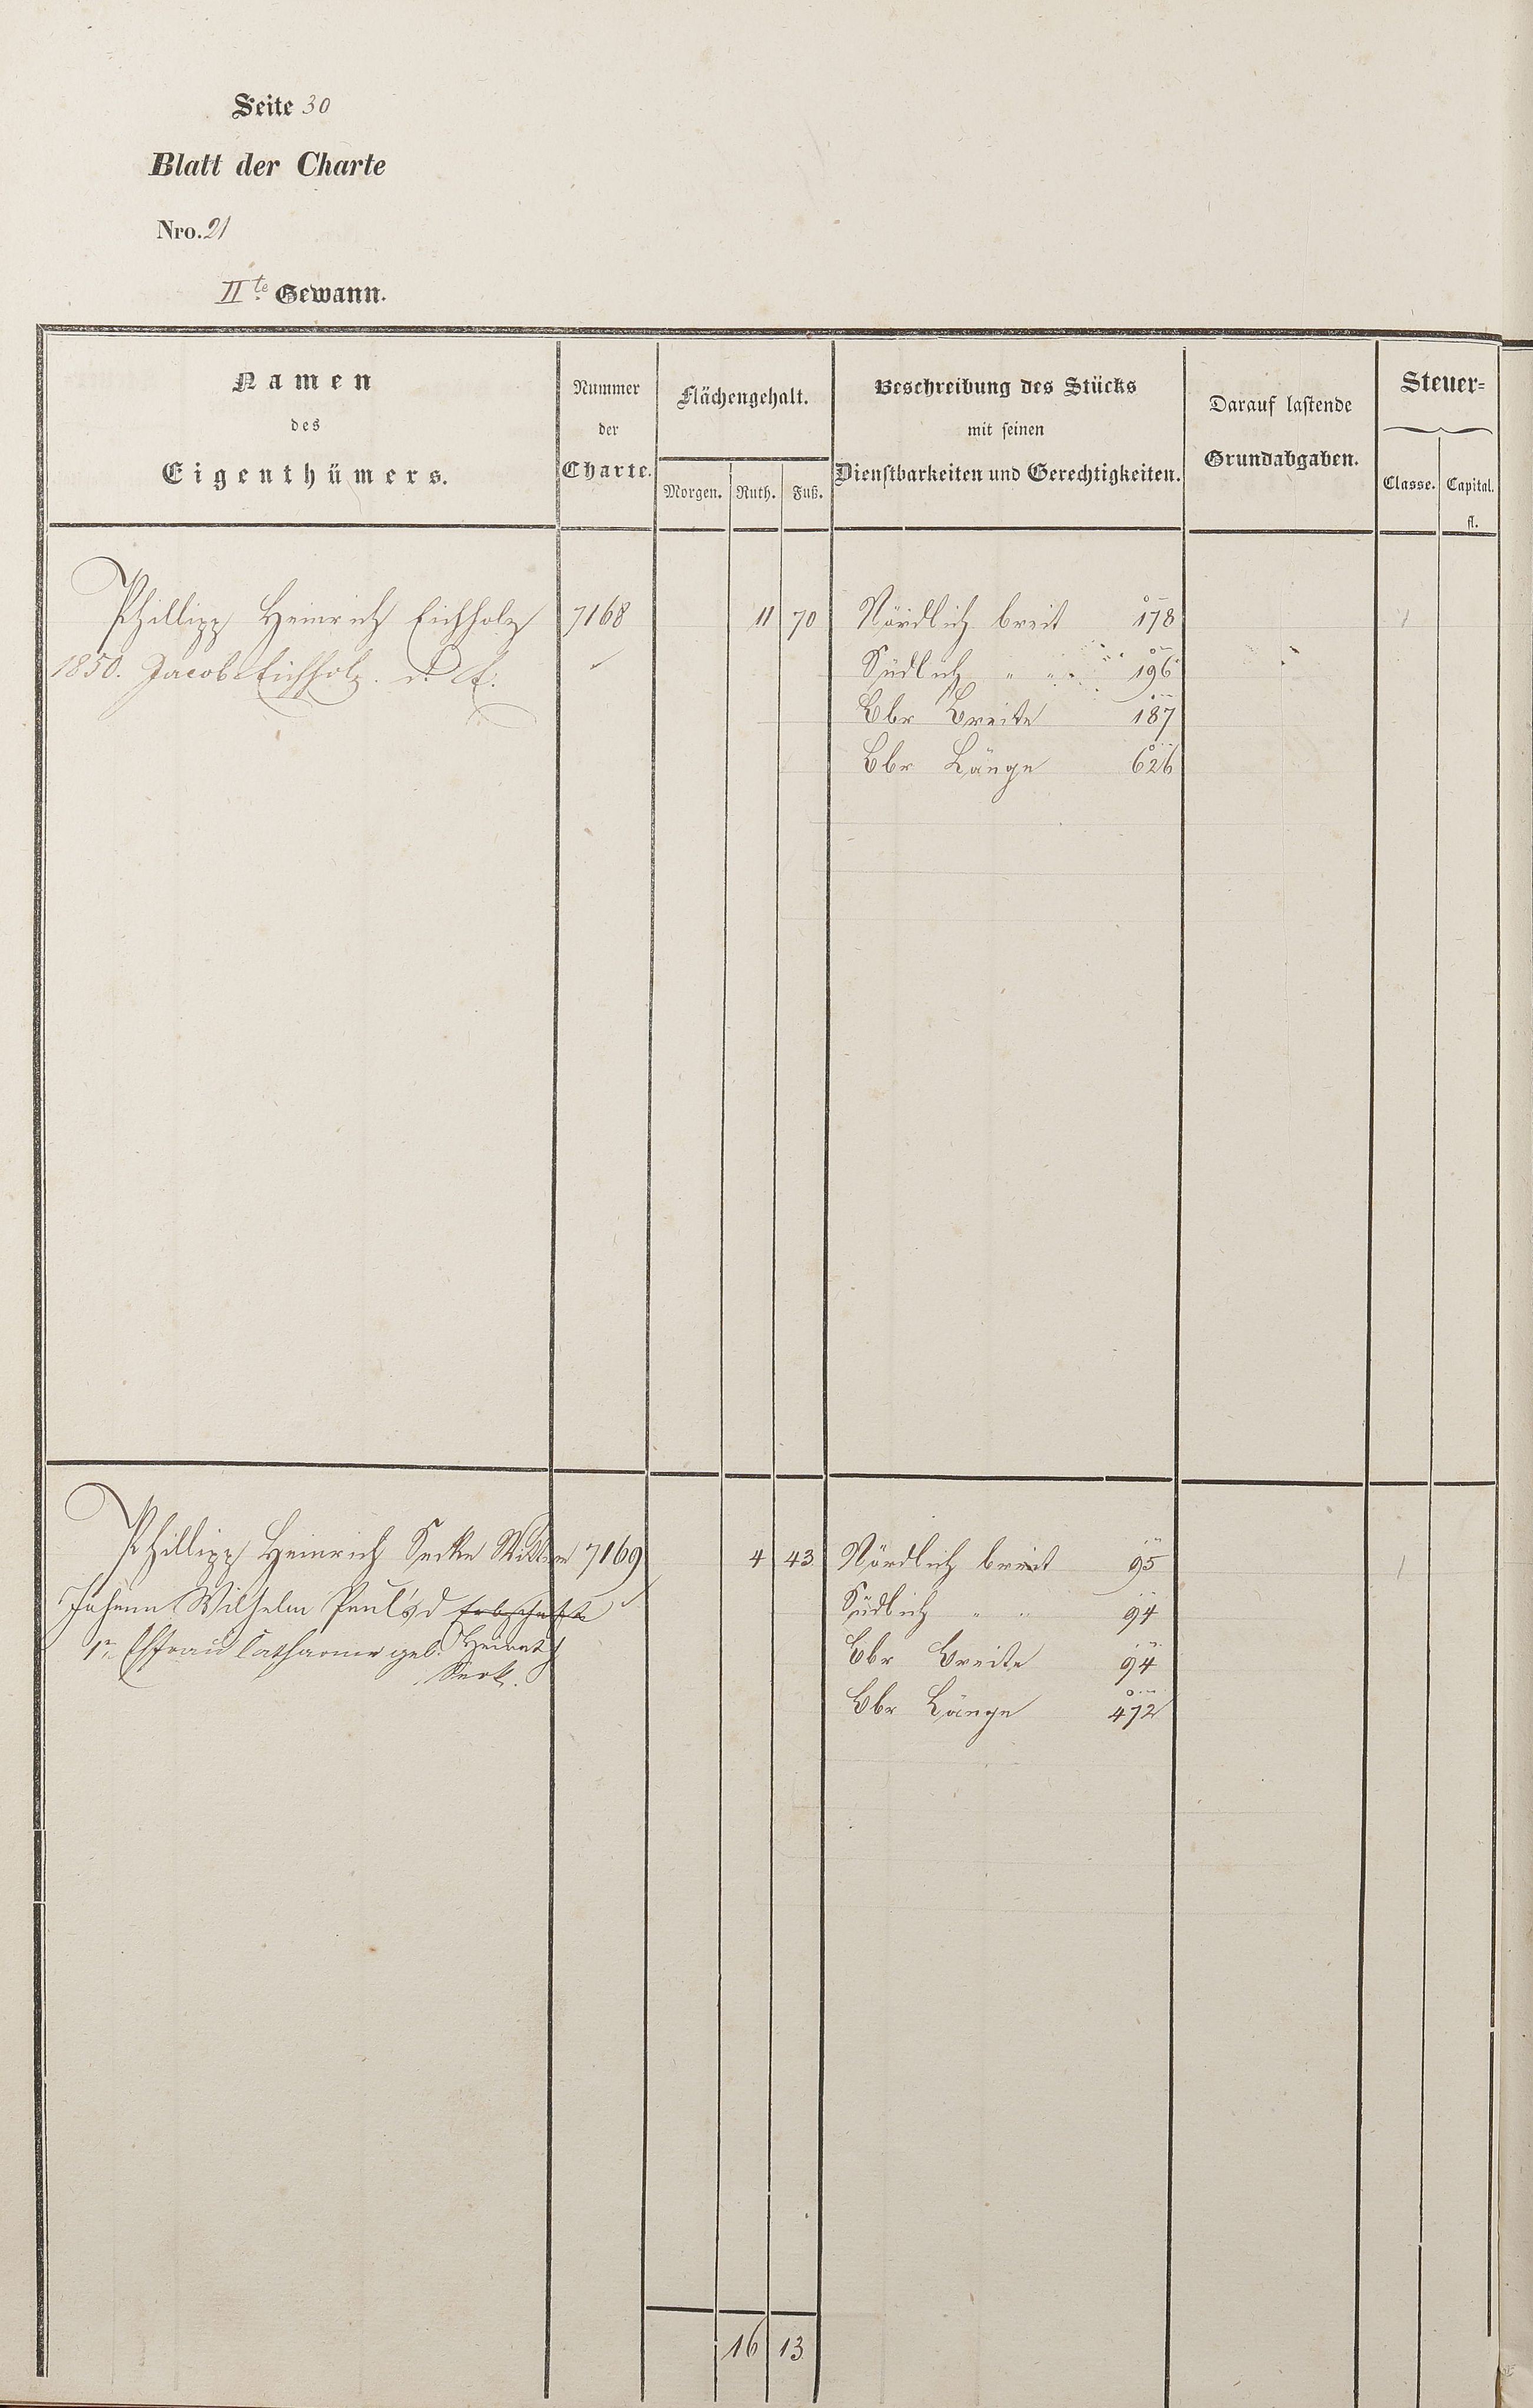 Seite 30
Blatt der Charte
Nro. 21
IIte Gewann.
Namen
des
Eigenthümers.
Nummer
der
Charte.
Flächengehalt.
Morgen. Ruth. Fuß.
Beschreibung des Stücks
mit seinen
Dienstbarkeiten und Gerechtigkeiten.
Darauf lastende
Grundabgaben.
Steuer=
Classe. Capital.
fl.
Phillipp Heinrich Eichholz 7168 11 70 Nördlich breit 178 1
1850. Jacob Eichholz. d. E. Südlich " " 196
Cbr Breite 187
Cbr Länge 626
Phillipp Heinrich 7169 4 43 Nördlich breit 95 1
Johann Wilhelm Paul's d Erbschaft Südlich " " 94
1r Ehfrau Catharine geb. Heinrich Cbr Breite 94
Cbr Länge 472
16 13